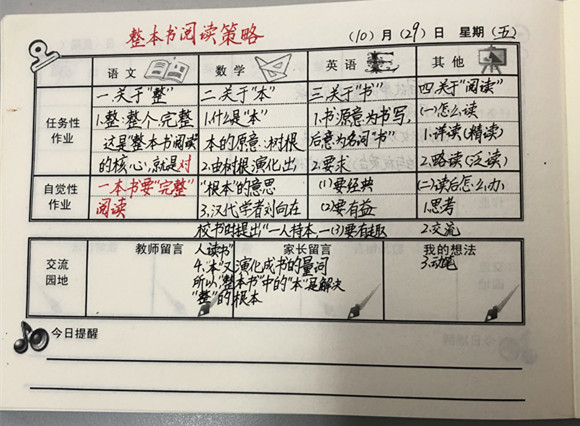 整本书阅读策略
(10)月(29)日 星期(五)
语文 数学 英语 其他
任务性作业
自觉性作业
一.关于"整"
1.整:整个.完整
这是"整本书阅读"
的核心,就是对
一本书要"完整"
阅读
二.关于"本"
1.什么是"本"
本的原意:树根
2.由树根演化出
"根本"的意思
3.汉代学者刘向在
校书时提出"一人持本,一
人读书"
4."本"又演化成书的量词
所以,"整本书"中的"本"是解决
"整"的根本
三.关于"书"
1.书:原意为书写,
后意为名词"书"
2.要求
(1)要经典
(2)要有益
(3)要有趣
四.关于"阅读"
(一)怎么读
1.详读(精读)
2.略读(泛读)
(二)读后怎么办
1.思考
2.交流
3.动笔
交流园地
教师留言 家长留言 我的想法
今日提醒